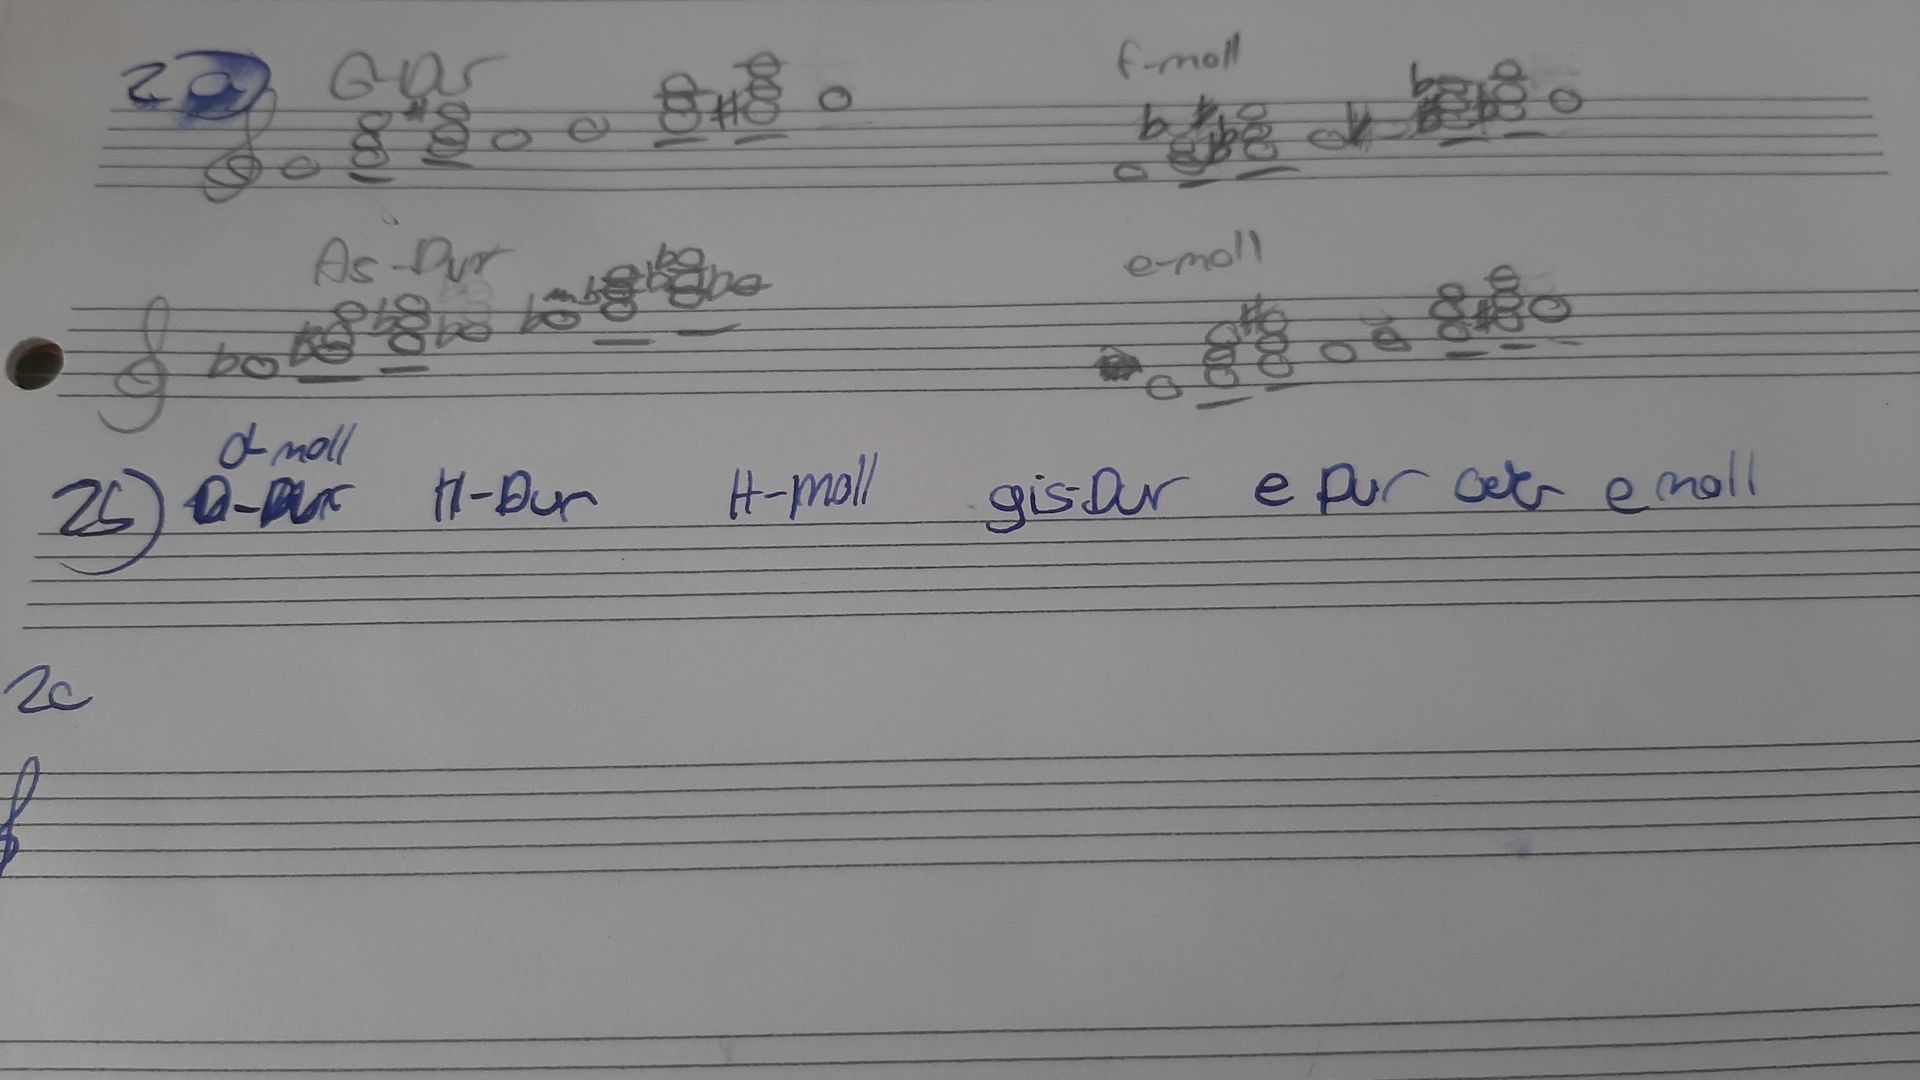 2a G-Dur f-moll
As-Dur e-moll
d-moll
2b) D-Dur H-Dur H-moll gis-Dur e Dur oder e moll
2c